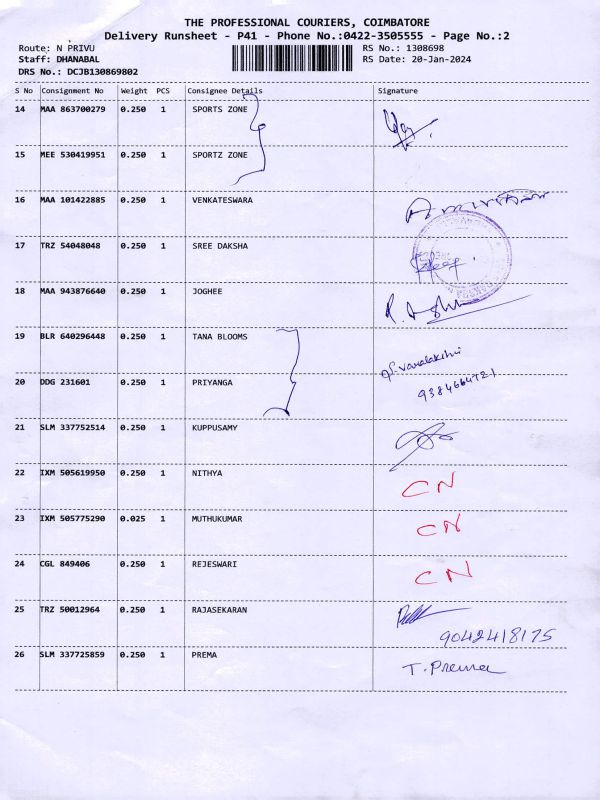 THE PROFESSIONAL COURIERS, COIMBATORE
Delivery Runsheet - P41 - Phone No.:0422-3505555 - Page No.:2
Route: N PRIVU RS No.: 1308698
Staff: DHANABAL RS Date: 20-Jan-2024
DRS No.: DCJB130869802
S No Consignment No Weight PCS Consignee Details Signature
14 MAA 863700279 0.250 1 SPORTS ZONE
15 MEE 530419951 0.250 1 SPORTZ ZONE
16 MAA 101422885 0.250 1 VENKATESWARA
17 TRZ 54048048 0.250 1 SREE DAKSHA
18 MAA 943876640 0.250 1 JOGHEE
19 BLR 640296448 0.250 1 TANA BLOOMS
20 DDG 231601 0.250 1 PRIYANGA 9384664721
21 SLM 337752514 0.250 1 KUPPUSAMY
22 IXM 505619950 0.250 1 NITHYA CN
23 IXM 505775290 0.025 1 MUTHUKUMAR CN
24 CGL 849406 0.250 1 REJESWARI CN
25 TRZ 50012964 0.250 1 RAJASEKARAN 9042418175
26 SLM 337725859 0.250 1 PREMA T. Prema